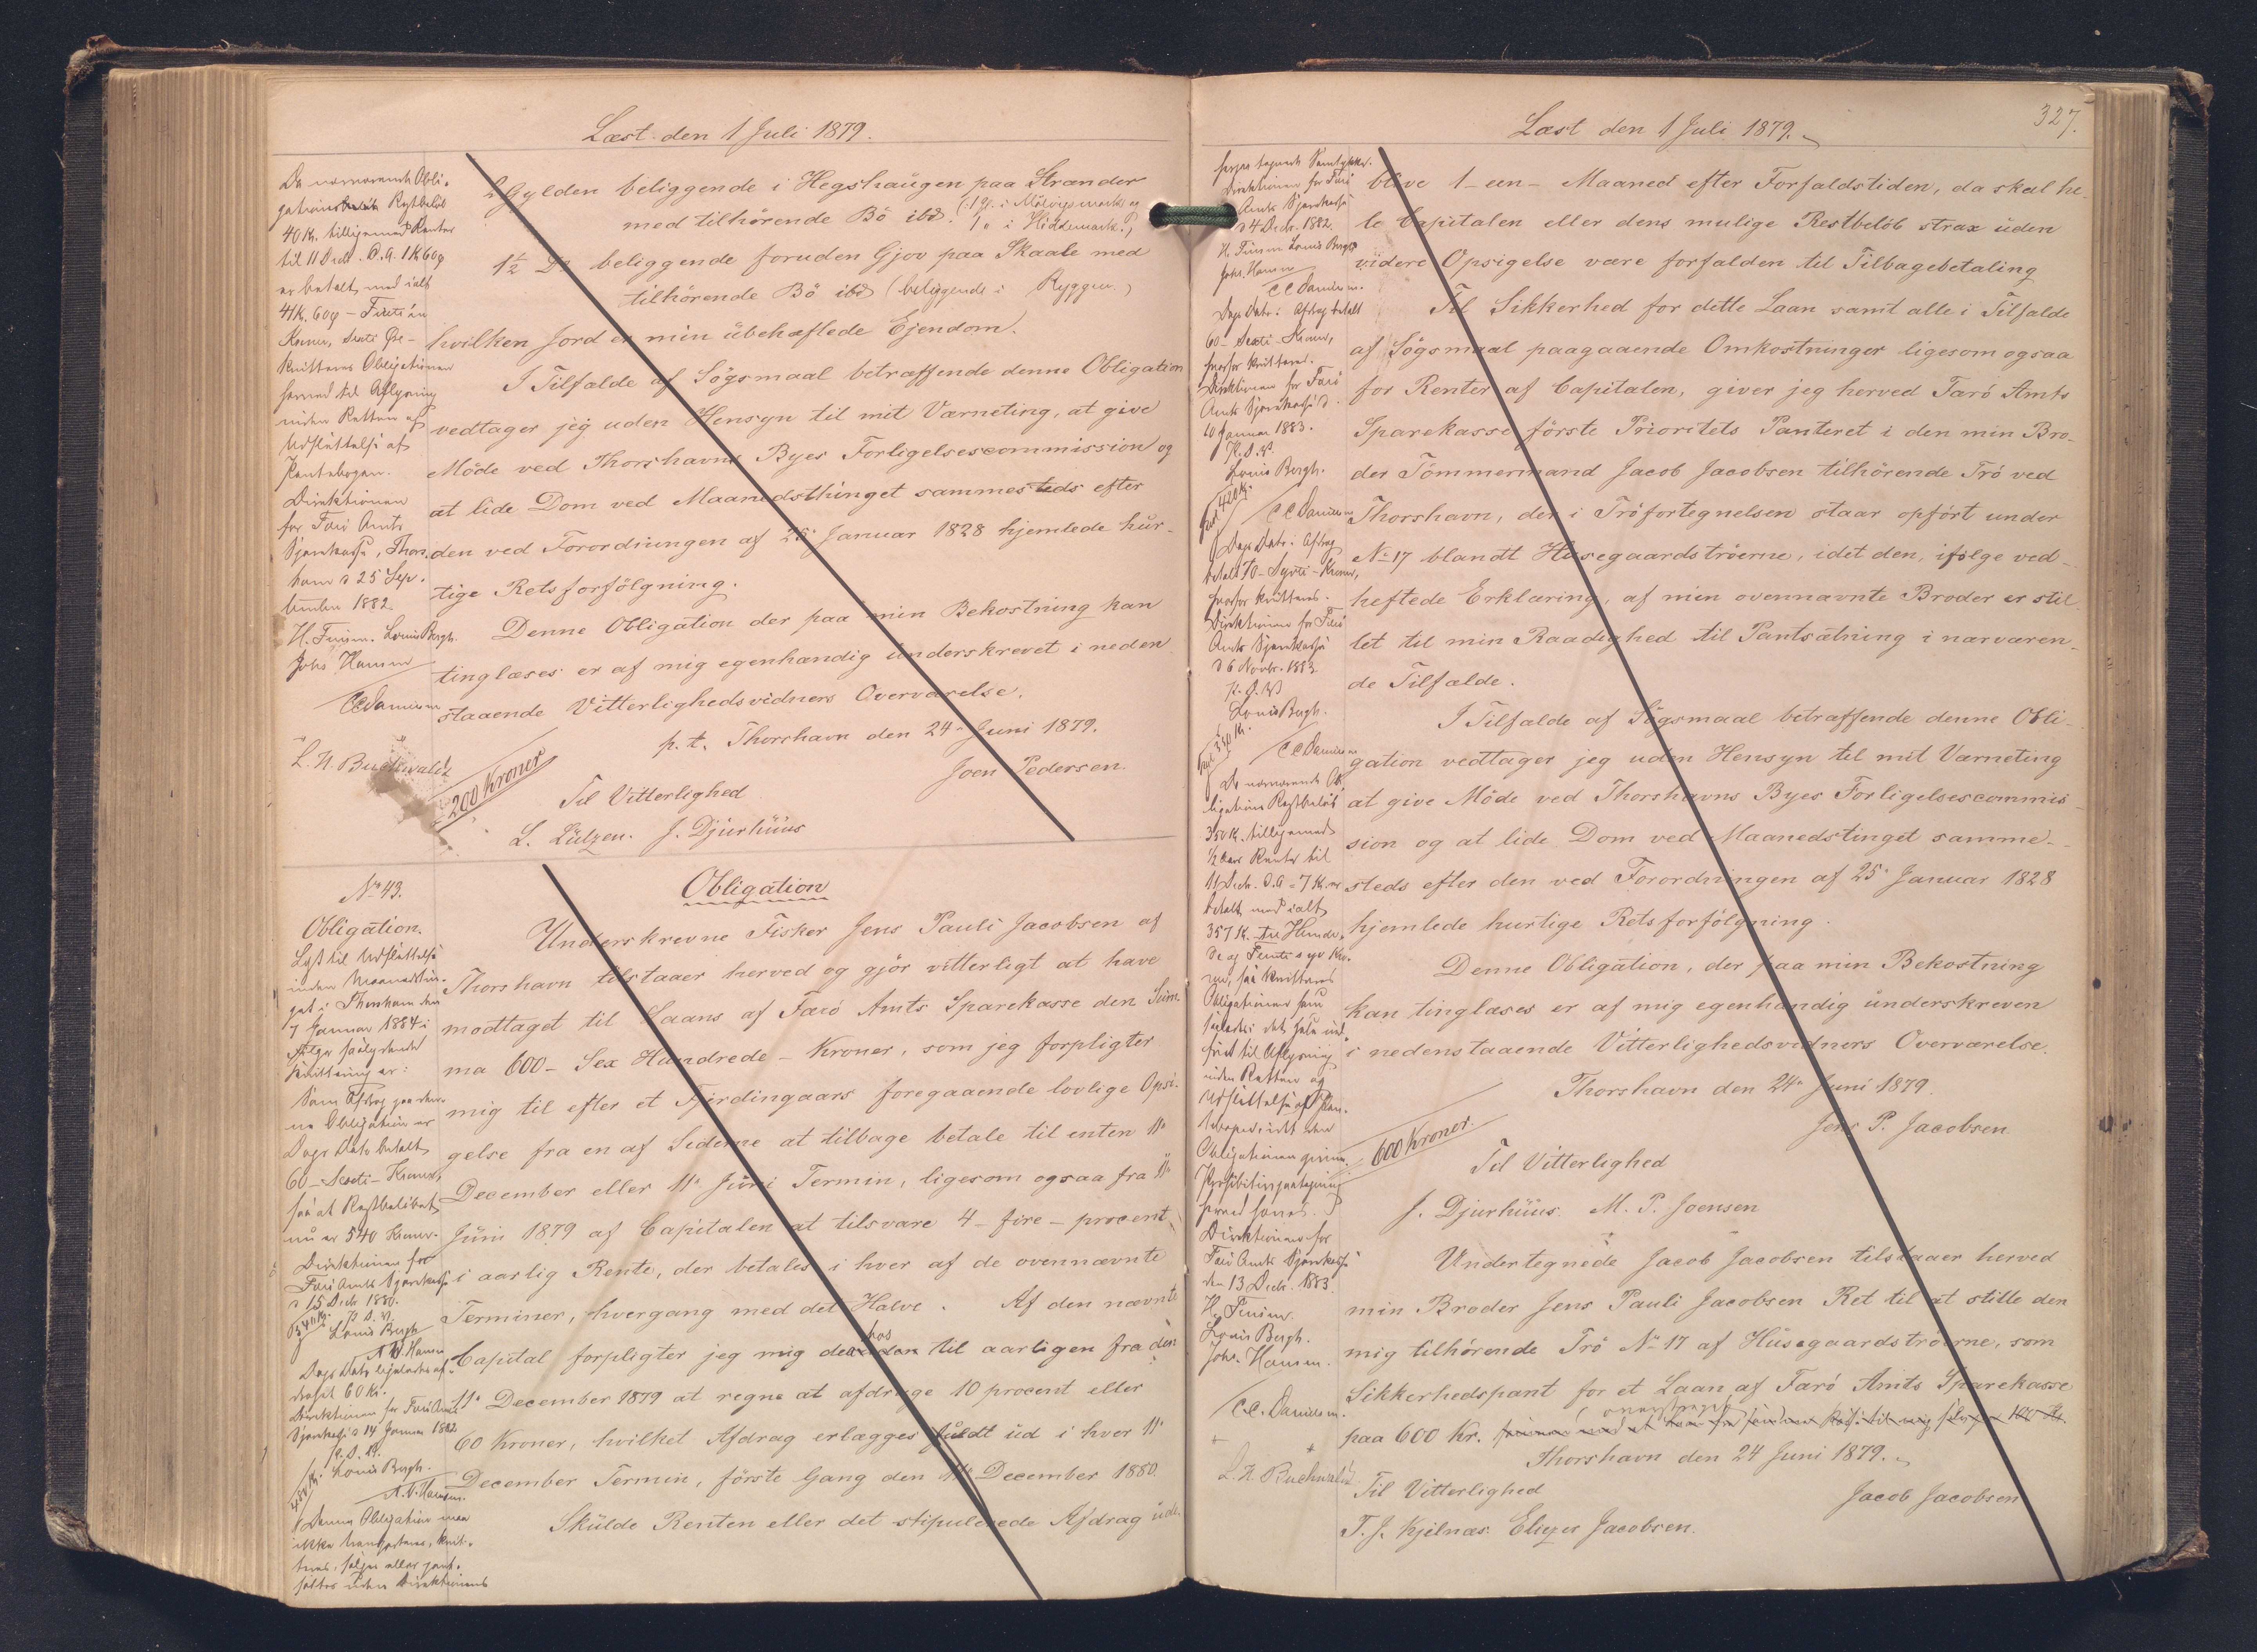 Læst den 1 Juli 1879.
2 Gylden beliggende i Hegshaugen paa Strander
med tilhörende Bö ibd.
1½ Do beliggende foruden Gjov paa Skaale med
tilhörende Bö ibd (beliggende i Ryggen)
hvilken Jord er min übehæftede Ejendom.
I Tilfælde af Sögsmaal betræffende denne Obligation
vedtager jeg uden Hensyn til mit Værneting, at give
Möde ved Thorshavns Byes Forligelsescommission og
at lide Dom ved Maanedsthinget sammesteds efter
den ved Forordningen af 25. Januar 1828 hjemlede hür-
tige Retsforfölgning.
Denne Obligation der paa min Bekostning kan
tinglæses er af mig egenhændig ünderskrevet i neden
staaende Vitterlighedsvidners Overværelse.
p. t. Thorshavn den 24. Juni 1879.
Joen Pedersen.
Til Vitterlighed
L. Lützen. J. Djurhüüs
200 Kroner
Da nærværende Obli-
gations Restbeløb
40 Kr. tilligemed Renter
til 11 Decbr. D.A. 1 K 60 ø
er betalt med ialt
41 K. 60 ø
Kroner, Sexti Øre -
kvitteres Obligationen
herved til Aflysning
inden Retten og
Udslettelse af
Pantebogen.
Direktionen
for Færö Amts
Sparekasse, Thors-
havn d 25 Sep-
tember 1882.
H. Finsen. Louis Bergh.
Johs Hansen
CC Danielsen
L. H. Buchwaldt
No 43.
Obligation.
Lyst til Udslettelse
inden Maanedstin-
get i Thorshavn den
7 Januar 1884 i
Følge saalydende
Kvittering er:
Som Afdrag paa den-
ne Obligation er
Dags Dato betalt
60 - Sexti - Kroner,
saa at Restbeløbet
nu er 540 Kroner.
Direktionen for
Færö Amts Sparekasse
d 15 Decbr 1880.
P. D. V.
540 Kr.
Louis Bergh
Dags Dato ligeledes af-
draget 60 Kr.
Direktionen for Færö Amts
Sparekasse d 14 Januar 1882
P. D. V.
480 Kr.
Louis Bergh.
Denne Obligation maa
ikke transporteres, kvit-
teres, sælges eller pant-
sættes uden Direktionens
Obligation
Underskrevne Fisker Jens Pauli Jacobsen af
Thorshavn tilstaaer herved og gjör vitterligt at have
modtaget til Laans af Færö Amts Sparekasse den Süm-
ma 600 - Sex Hundrede - Kroner, som jeg forpligter
mig til efter et Fjerdingaars foregaaende lovlige Opsi-
gelse fra en af Siderne at tilbage betale til enten 11e
December eller 11e Jüni Termin, ligesom ogsaa fra 11e
Jüni 1879 af Capitalen at tilsvare 4 - fire - procent
i aarlig Rente, der betales i hver af de ovennævnte
Terminer, hvergang med det Halve. Af den nævnte
Capital forpligter jeg mig desuden til aarligen fra den
11e December 1879 at regne at afdrage 10 procent eller
60 Kroner, hvilket Afdrag erlægges fuldt üd i hver 11e
December Termin, förste Gang den 11e December 1880.
Skülde Renten eller det stipulerede Afdrag üde
Læst den 1 Juli 1879.
327.
blive 1 - een - Maaned efter Forfaldstiden, da skal he-
le Capitalen eller dens mulige Restbelöb strax üden
videre Opsigelse være forfalden til Tilbagebetaling
Til Sikkerhed for dette Laan samt alle i Tilfælde
af Sögsmaal paagaaende Omkostninger ligesom ogsaa
for Renter af Capitalen, giver jeg herved Færö Amts
Sparekasse förste Prioritets Panteret i den min Bro-
der Tömmermand Jacob Jacobsen tilhörende Trö ved
Thorshavn, der i Tröfortegnelsen staar opfört under
No 17 blandt Husegaardströerne, idet den, ifölge ved-
heftede Erklæring, af min ovennævnte Broder er stil-
let til min Raadighed til Pantsætning i nærværen-
de Tilfælde.
I Tilfælde af Sögsmaal betræffende denne Obli-
gation vedtager jeg uden Hensyn til mit Værneting
at give Möde ved Thorshavns Byes Forligelsescommis-
sion og at lide Dom ved Maanedstinget samme-
steds efter den ved Forordningen af 25. Januar 1828
hjemlede hurtige Retsforfölgning.
Denne Obligation, der paa min Bekostning
kan tinglæses er af mig egenhændig ünderskreven
i nedenstaaende Vitterlighedsvidners Overværelse.
Thorshavn den 24. Juni 1879.
Jens P. Jacobsen
600 Kroner.
Til Vitterlighed
J. Djurhüüs. M. P. Joensen
Undertegnede Jacob Jacobsen tilstaaer herved
min Broder Jens Pauli Jacobsen Ret til at stille den
mig tilhörende Trö No 17 af Hüsegaardströerne, som
Sikkerhedspant for et Laan af Færö Amts Sparekasse
paa 600 Kr.
Thorshavn den 24 Juni 1879.
Til Vitterlighed
Jacob Jacobsen
T. J. Kjelnæs. Eliezer Jacobsen.
Direktionen for Færö
Amts Sparekasse
d 4 Decbr. 1882.
H. Finsen Louis Bergh
Johs. Hansen
CC Danielsen.
Dags Dato i Afdrag betalt
60 - Sexti - Kroner,
hvorfor kvitteres.
Direktionen for Færö
Amts Sparekasse d.
10 Januar 1883.
P. D. V.
Louis Bergh.
420 Kr.
CC Danielsen
Dags Dato i Afdrag
betalt 70 - Syvti - Kroner,
hvorfor kvitteres.
Direktionen for Færö
Amts Sparekasse
d 6 Novbr. 1883.
P. D. V.
Louis Bergh.
350 Kr.
CC Danielsen
Da nærværende Ob-
ligations Restbeløb
350 Kr. tilligemed
½ Aars Renter til
11 Decbr. D.A = 7 Kr. er
betalt med ialt
357 K. Tre Hundre-
de og Femti syv Kro-
ner, saa kvitteres
Obligationen som
saaledes
til Aflysning
inden Retten og
Udslettelse af Pan-
Direktionen for
Færö Amts Sparekasse
den 13 Decbr. 1883.
H. Finsen.
Louis Bergh.
Johs. Hansen.
CC. Danielsen.
L. H. Buchwaldt